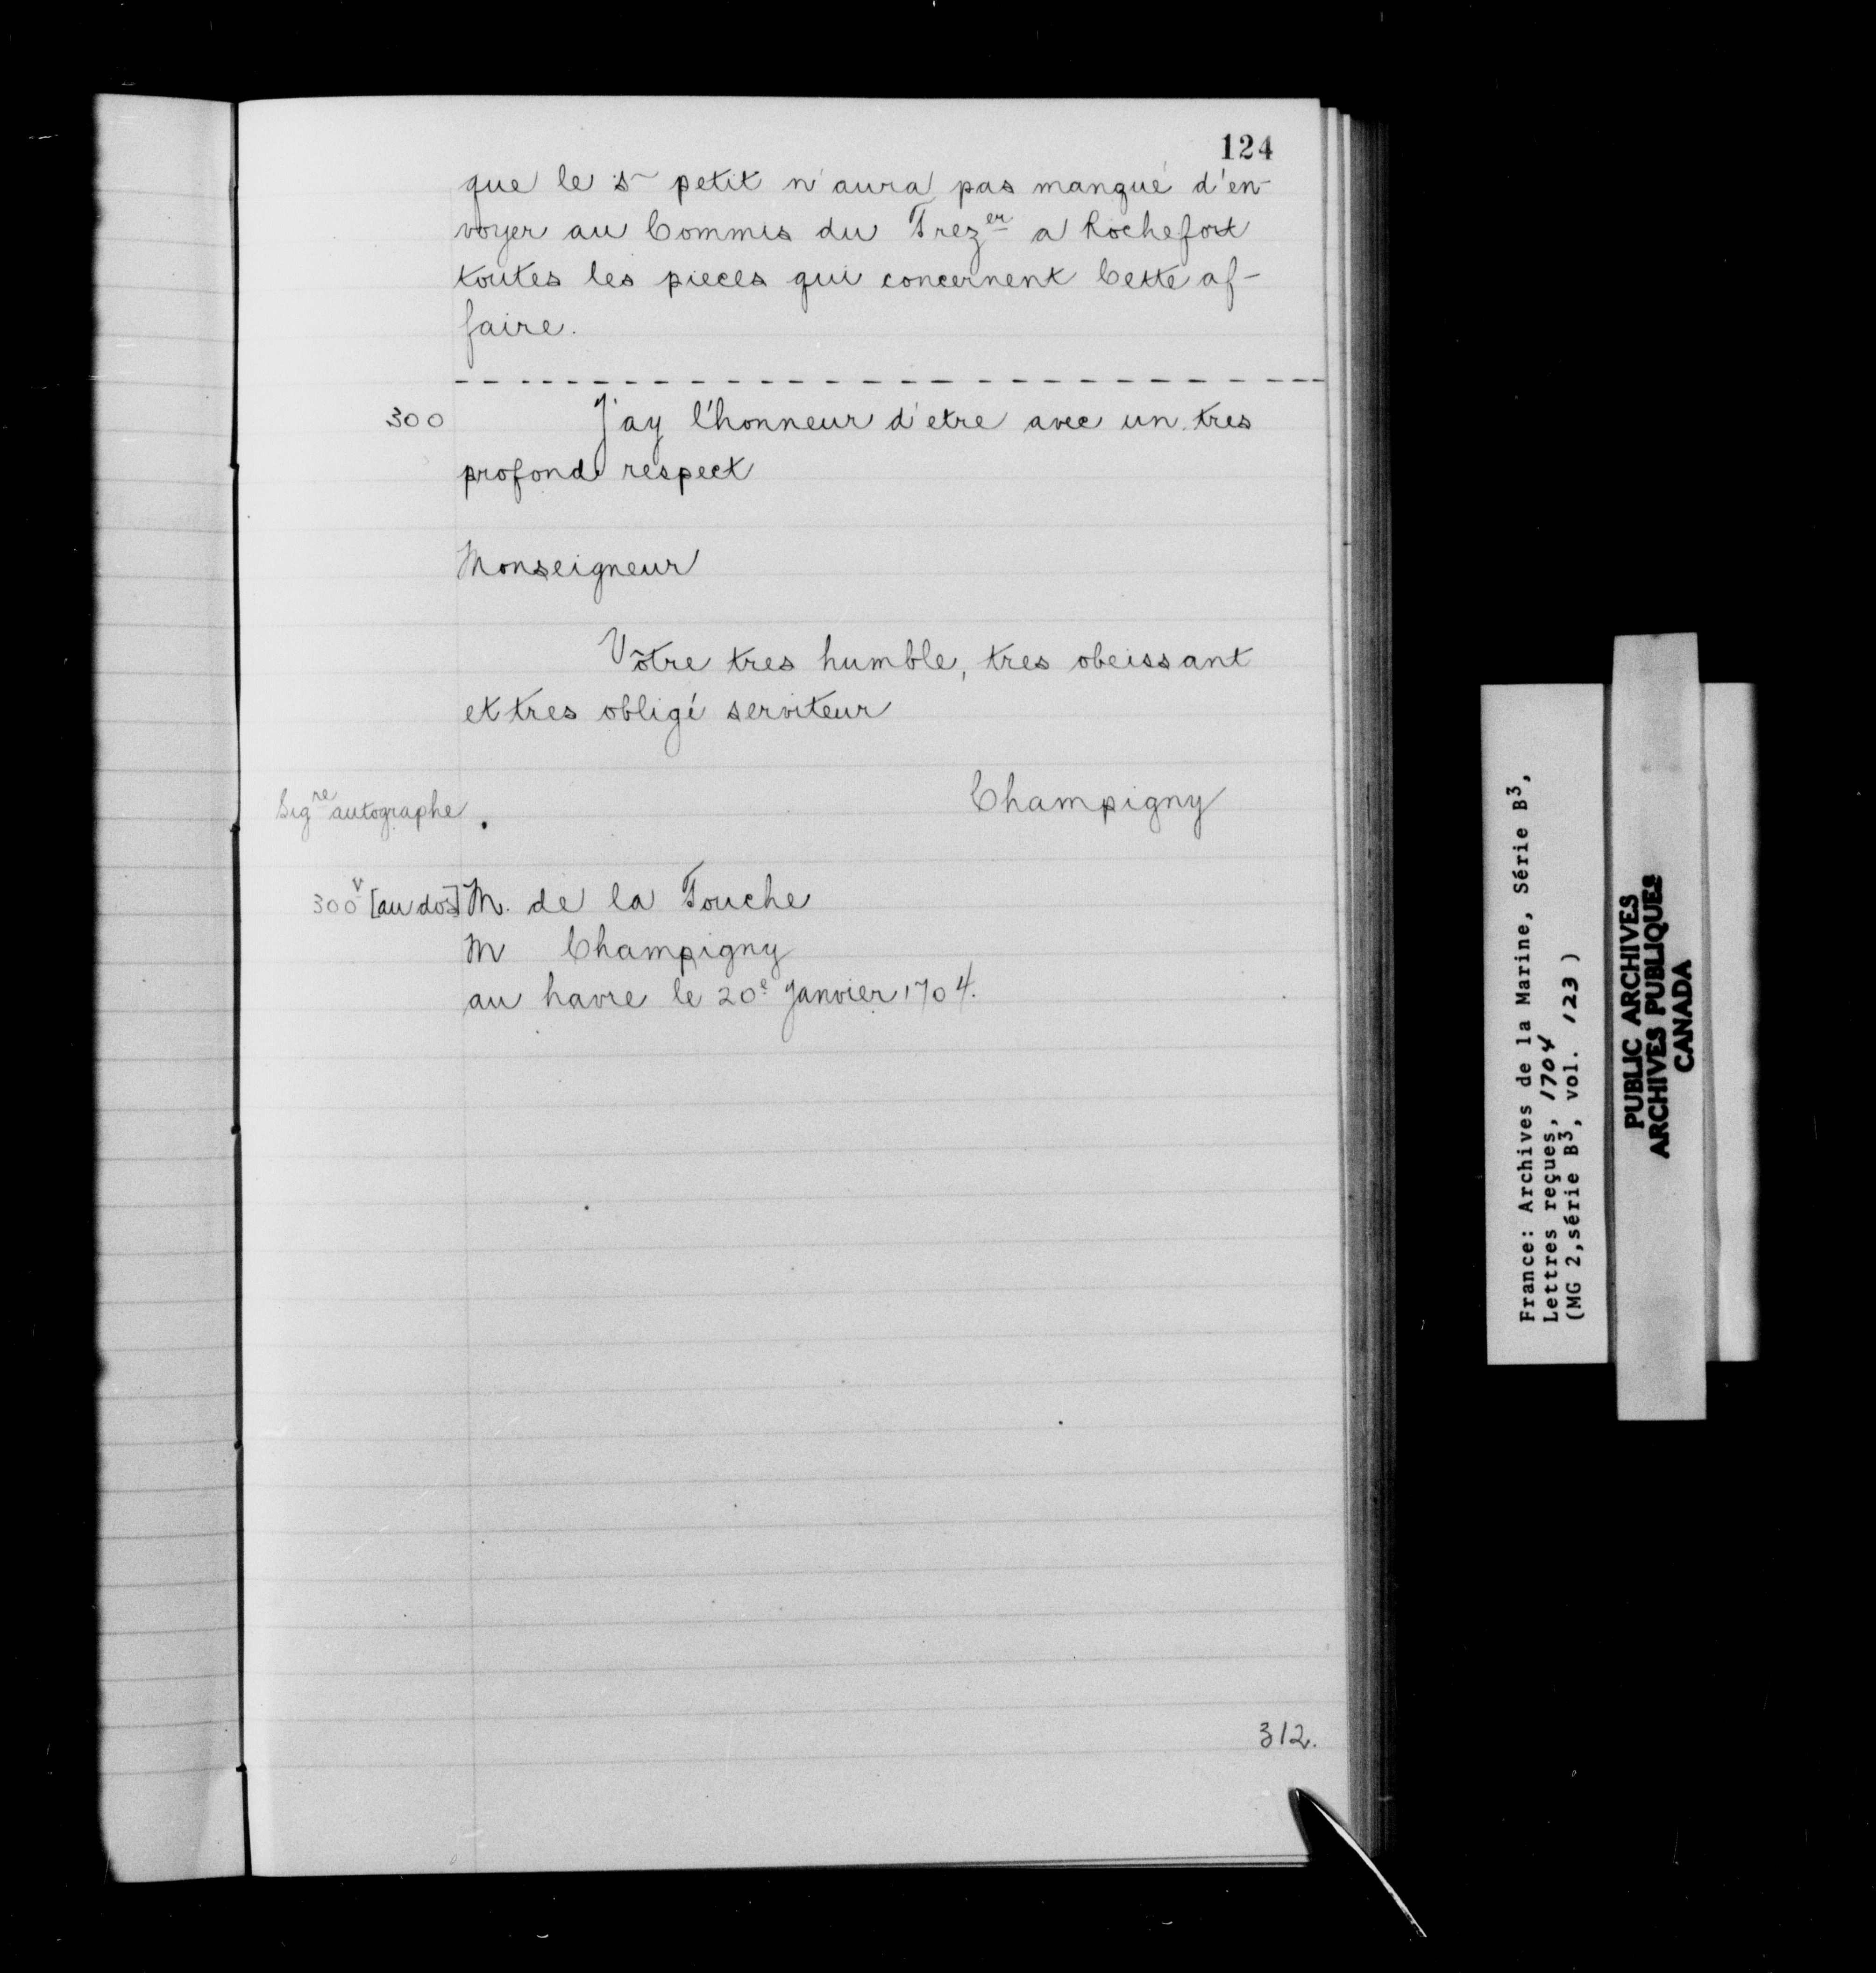 124
que le Sr petit n'aura pas manqué d'en-
voyer au Commis du Trezer a Rochefort
toutes les pieces qui concernent Cette af-
faire.
300 J'ay l'honneur d'etre avec un tres
profond respect
Monseigneur
Vôtre tres humble, tres obeissant
et tres obligé serviteur
Sigre autographe. Champigny
300v [au dos] M. de la Touche
M Champigny
au havre le 20e Janvier 1704.
312.
France: Archives de la Marine, Série B3,
Lettres reçues, 1704
(MG 2,série B3, vol. 123)
PUBLIC ARCHIVES
ARCHIVES PUBLIQUES
CANADA